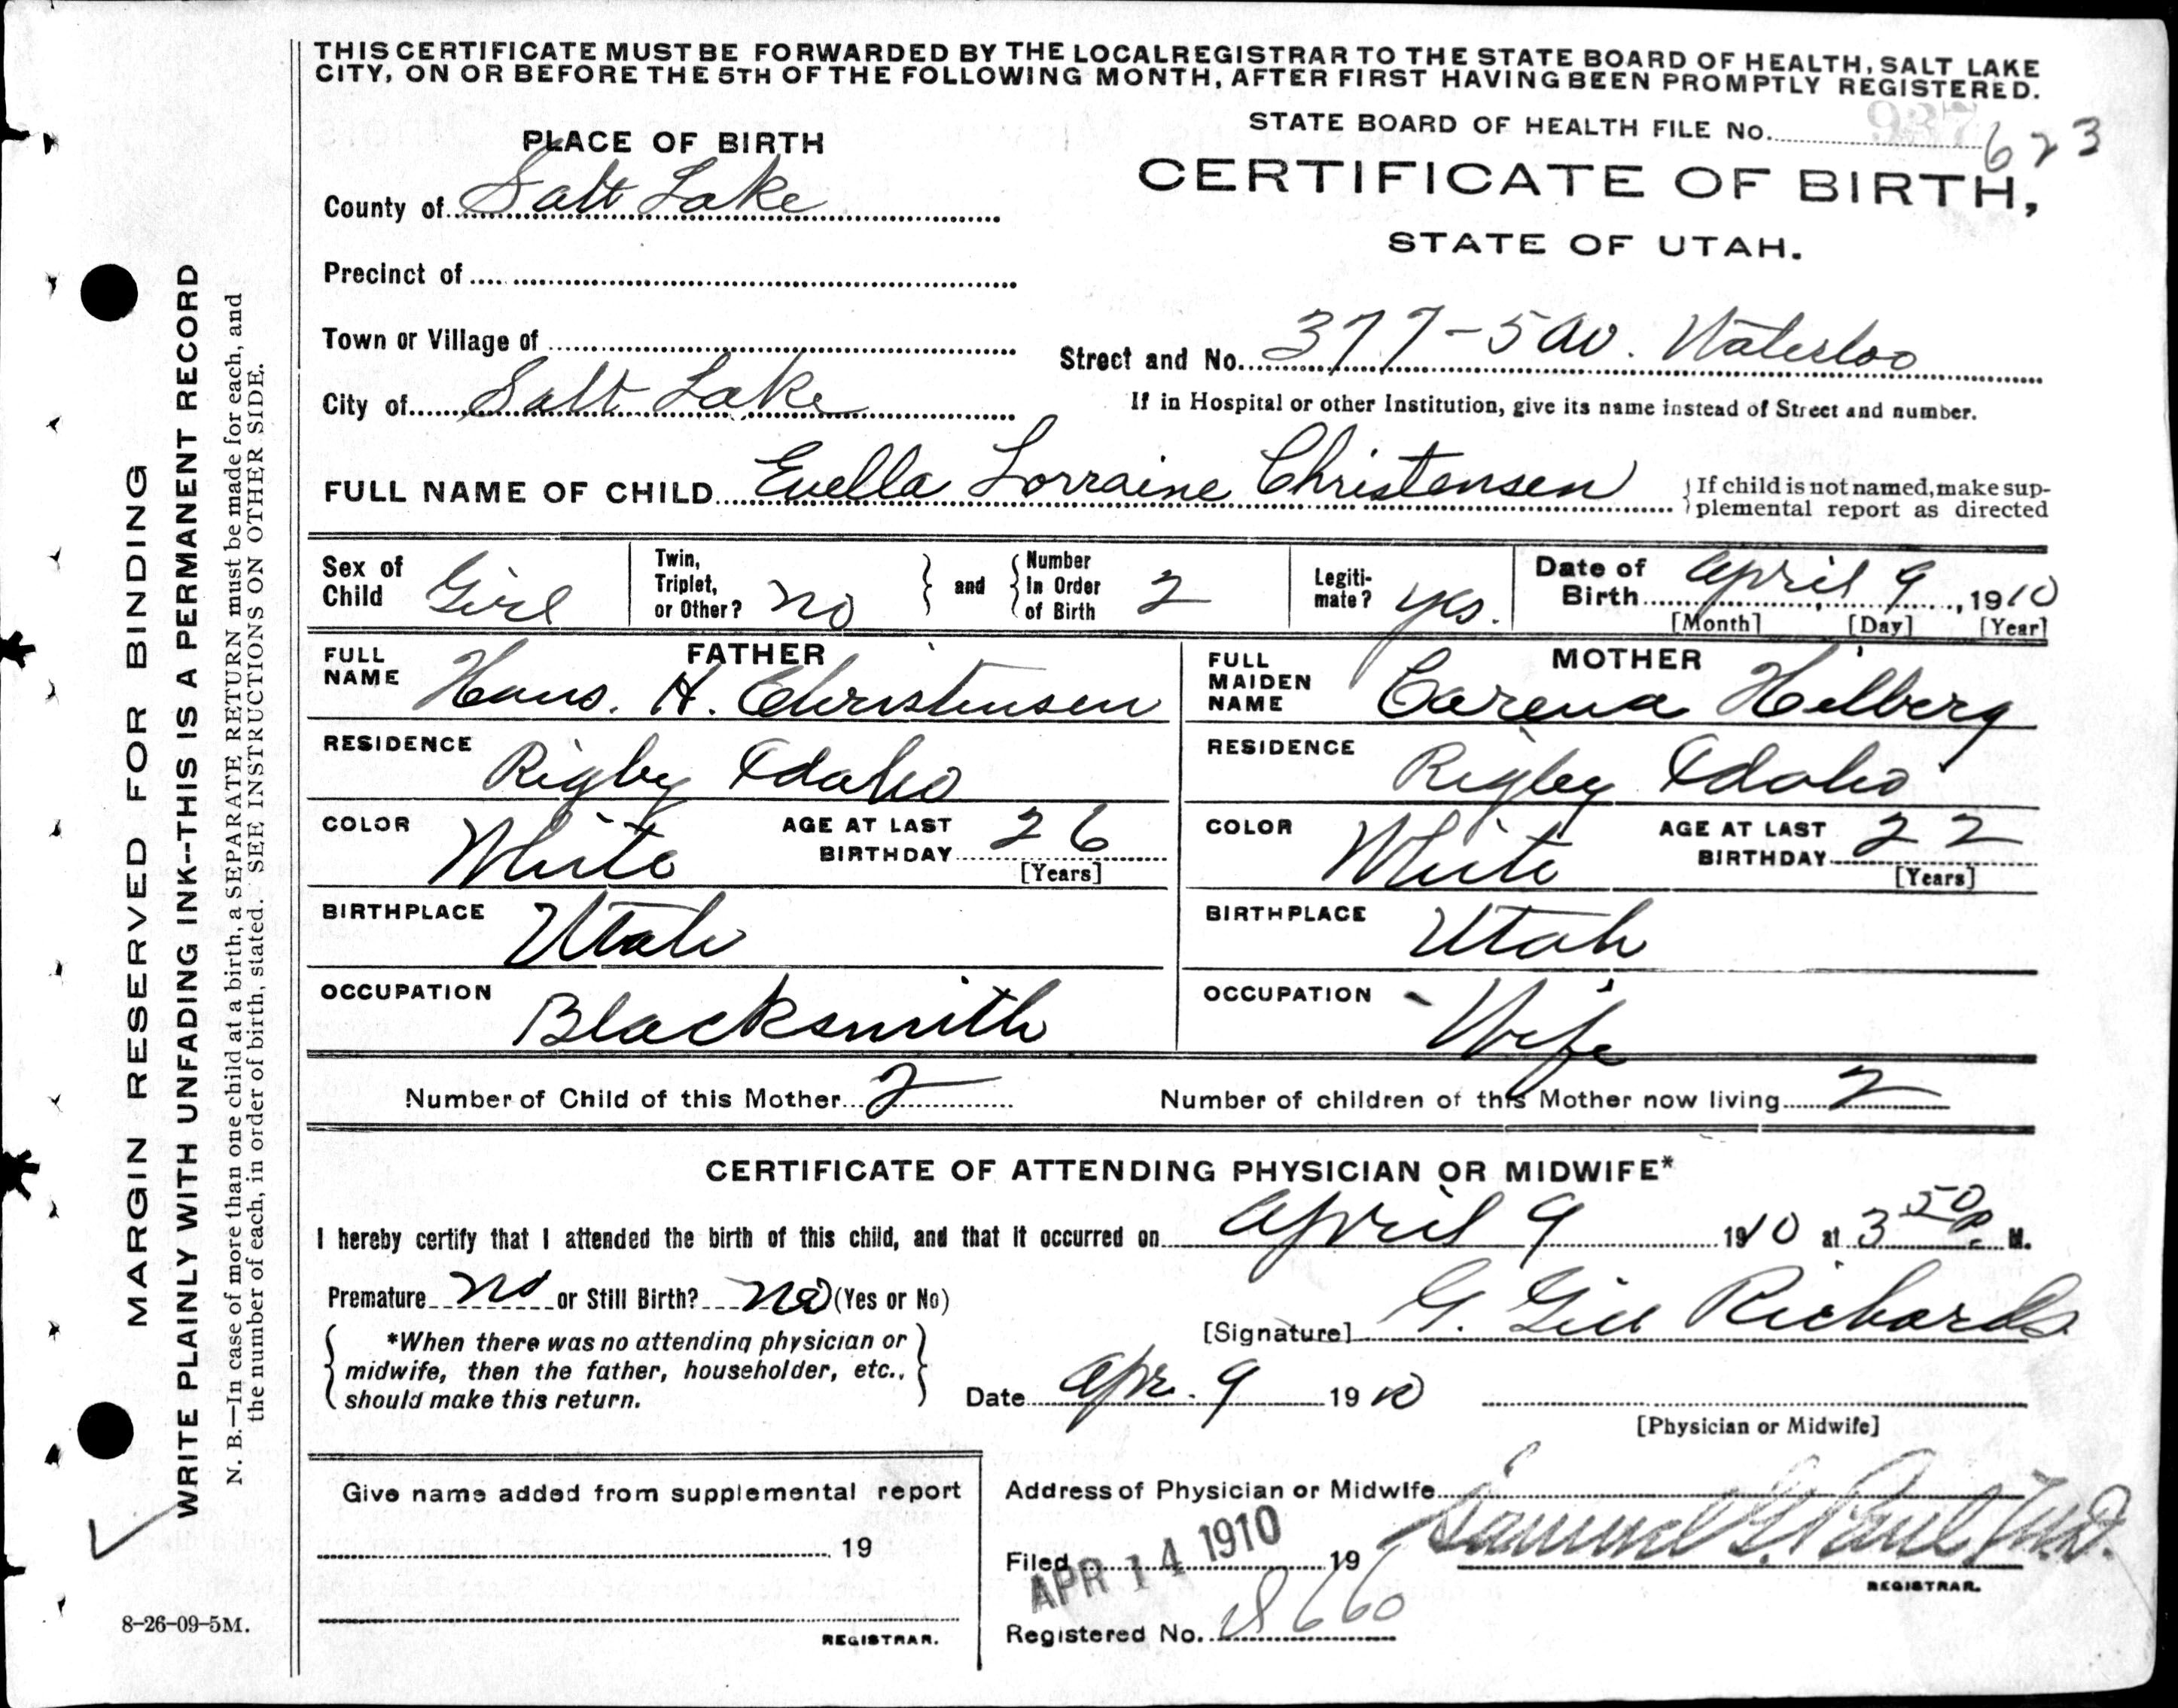 THIS CERTIFICATE MUST BE FORWARDED BY THE LOCAL REGISTRAR TO THE STATE BOARD OF HEALTH, SALT LAKE
CITY, ON OR BEFORE THE 5TH OF THE FOLLOWING MONTH, AFTER FIRST HAVING BEEN PROMPTLY REGISTERED.
STATE BOARD OF HEALTH FILE No. 937 623
PLACE OF BIRTH
CERTIFICATE OF BIRTH,
STATE OF UTAH.
County of Salt Lake
Precinct of
Town or Village of
Street and No. 377-5 av. Waterloo
City of Salt Lake
If in Hospital or other Institution, give its name instead of Street and number.
FULL NAME OF CHILD Evella Lorraine Christensen
If child is not named, make sup-
plemental report as directed
Sex of Child Girl
Twin, Triplet, or Other? no
and
Number In Order of Birth 2
Legiti-mate? yes.
Date of Birth April 9, 1910
[Month] [Day] [Year]
FATHER
FULL NAME Hans. H. Christensen
RESIDENCE Rigby Idaho
COLOR White
AGE AT LAST BIRTHDAY 26
[Years]
BIRTHPLACE Utah
OCCUPATION Blacksmith
MOTHER
FULL MAIDEN NAME Carena Helberg
RESIDENCE Rigby Idaho
COLOR White
AGE AT LAST BIRTHDAY 22
[Years]
BIRTHPLACE Utah
OCCUPATION - Wife
Number of Child of this Mother 2
Number of children of this Mother now living 2
CERTIFICATE OF ATTENDING PHYSICIAN OR MIDWIFE*
I hereby certify that I attended the birth of this child, and that it occurred on April 9 1910 at 3 50 P. M.
Premature no or Still Birth? no (Yes or No)
[Signature] G. Gill Richards
*When there was no attending physician or
midwife, then the father, householder, etc.,
should make this return.
Date Apr. 9 1910
[Physician or Midwife]
Give name added from supplemental report
19
REGISTRAR.
Address of Physician or Midwife
Filed APR 14 1910 19
Samuel G. Paul M.D.
REGISTRAR.
Registered No. 8660
MARGIN RESERVED FOR BINDING
WRITE PLAINLY WITH UNFADING INK--THIS IS A PERMANENT RECORD
N. B.—In case of more than one child at a birth, a SEPARATE RETURN must be made for each, and
the number of each, in order of birth, stated. SEE INSTRUCTIONS ON OTHER SIDE.
8-26-09-5M.